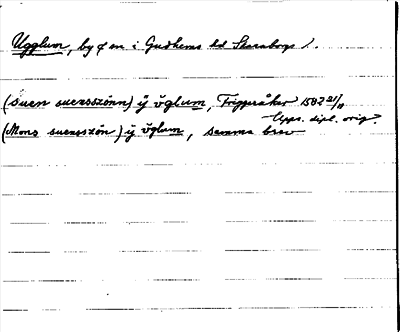 Ugglum, by o sn i Gudhems hd Skaraborgs l.
(suen suensszönn) ÿ vglum, Friggeråker 1582 21/11
Upps. dipl. orig.
(Mons suensszön) ÿ vglum, samma brev